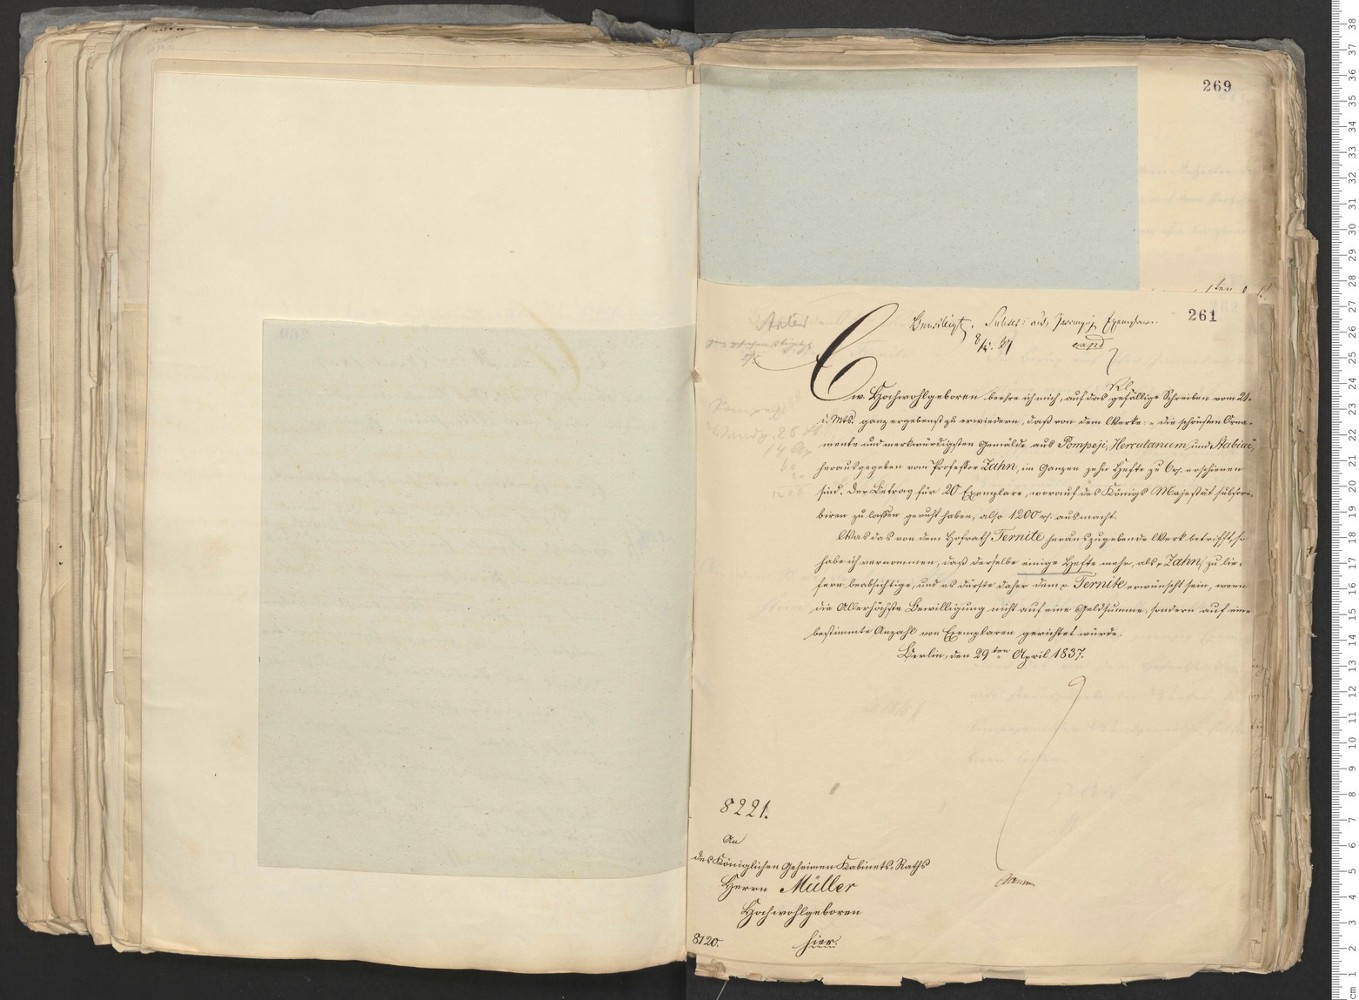 269
261
Bewilligt.
Ew. Hochwohlgeboren beehre ich mich, auf das gefällige Schreiben vom 21.
d. Mts. ganz ergebenst zu erwiedern, daß von dem Werke: „die schönsten Orna-
mente und merkwürdigsten Gemälde aus Pompeji, Herculanum und Stabiae,
herausgegeben vom Professor Zahn, im Ganzen zehn Hefte zu 6 rh. erschienen
sind. Der Betrag für 20 Exemplare, worauf des Königs Majestät subscri-
biren zu lassen geruht haben, also 1200 rh. ausmacht.
Was das von dem Hofrath Ternite herauszugebende Werk betrifft, so
habe ich vernommen, daß derselbe einige Hefte mehr, als p. Zahn, zu lie-
fern beabsichtige, und es dürfte daher dem p. Ternite erwünscht sein, wenn
die Allerhöchste Bewilligung nicht auf eine Geldsumme, sondern auf eine
bestimmte Anzahl von Exemplaren gerichtet würde.
Berlin, den 29ten April 1837.
8221.
An
des Königlichen Geheimen Kabinets-Raths
Herrn Müller
Hochwohlgeboren
hier.
8120.